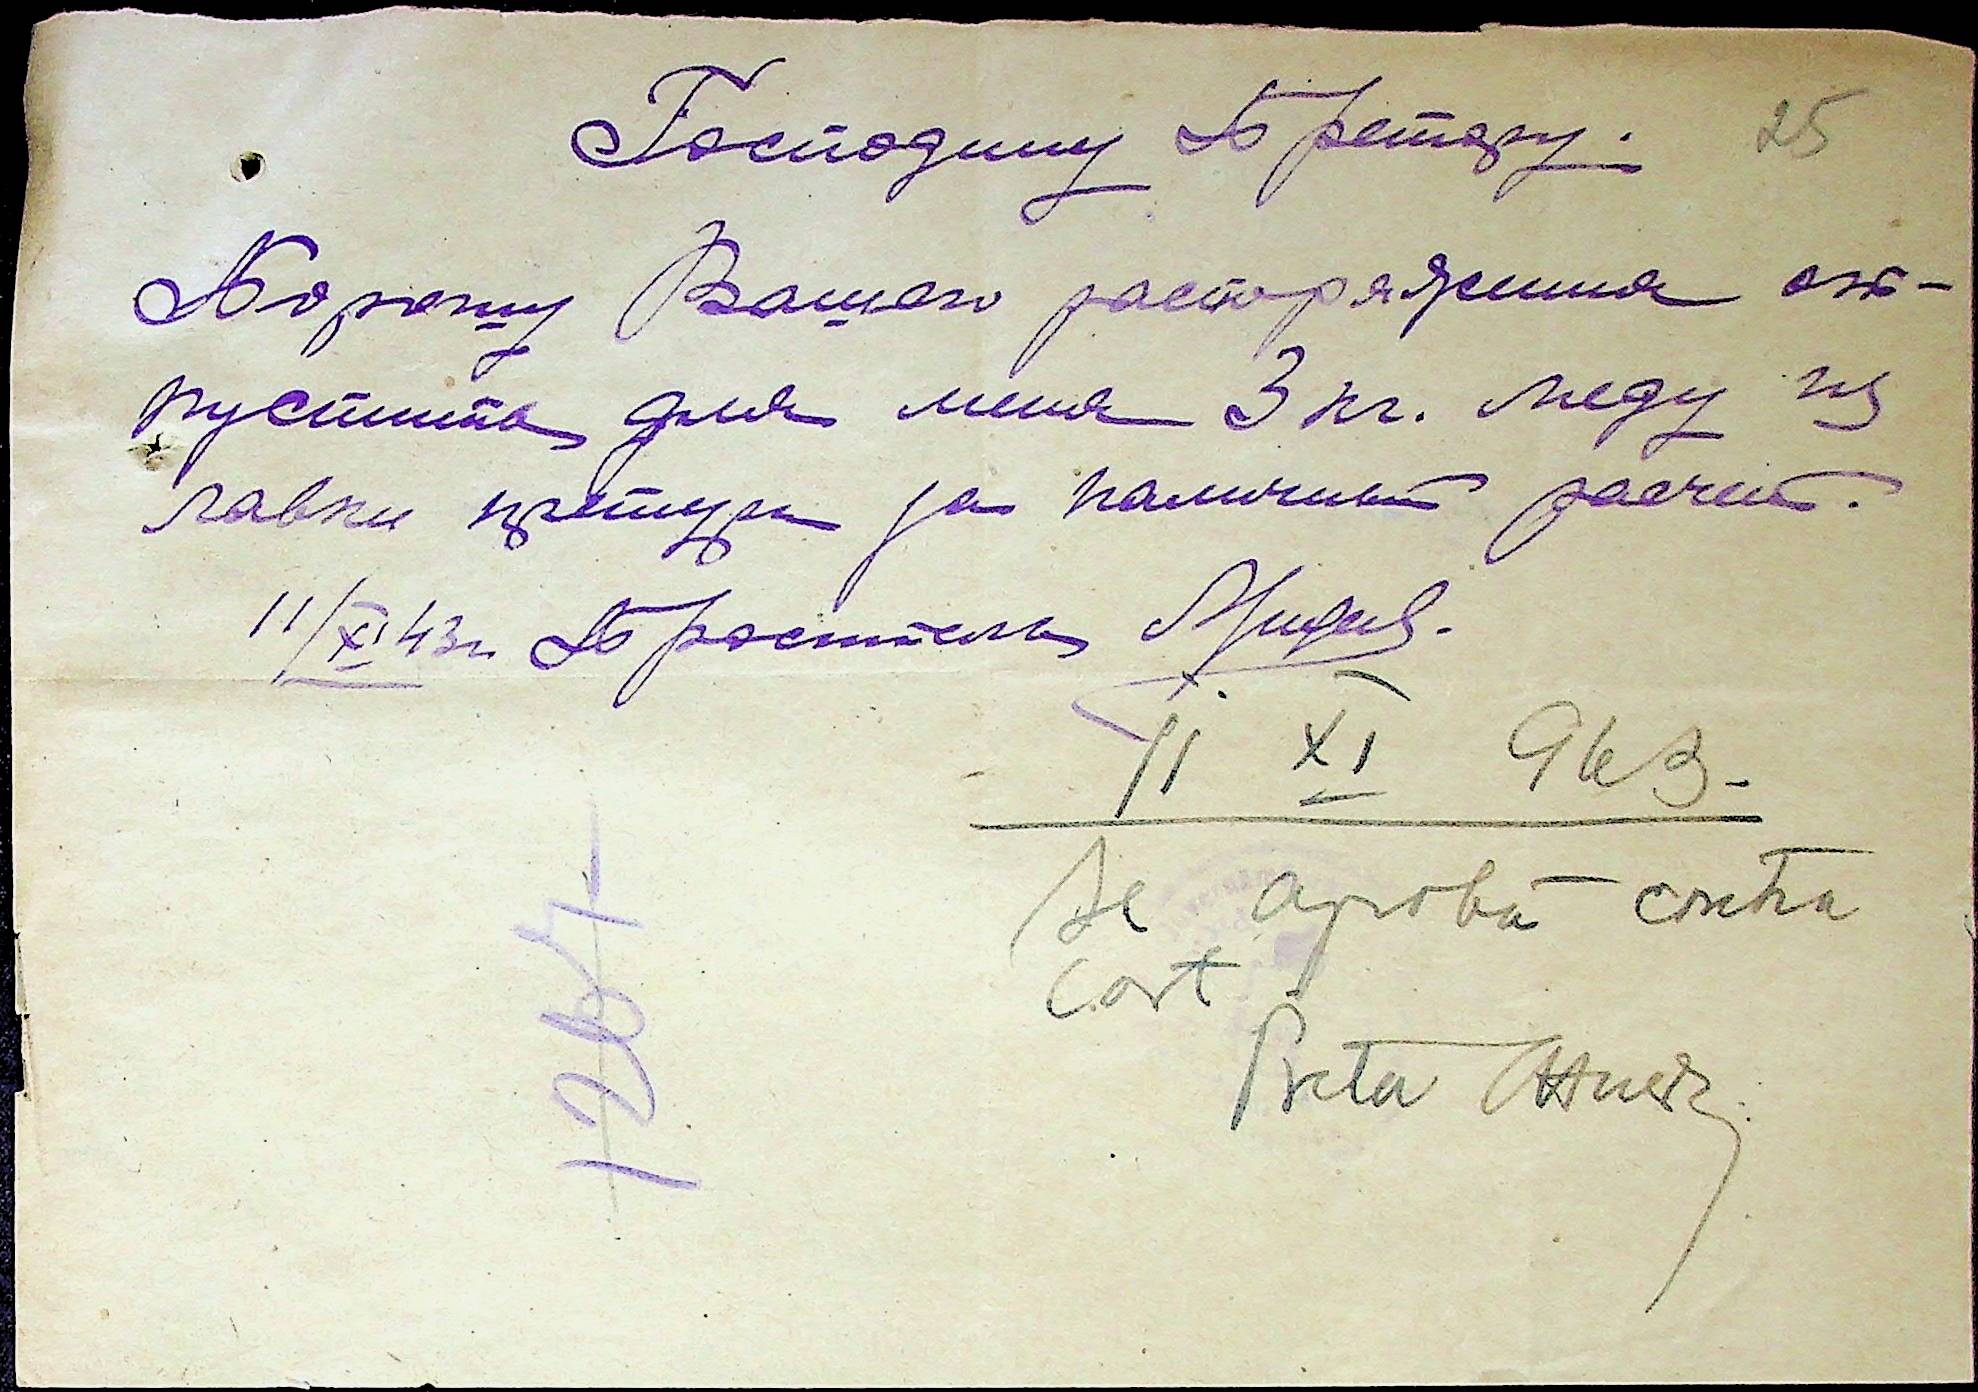 Господину Претору. 25
Я прошу Вашего распоряжения от-
пустить для меня 3 кг. меду из
лавки претуры за наличный расчет.
11/XI 43г. Проситель
11 XI 943.
Se aprobă contra
cost
Preta
1264